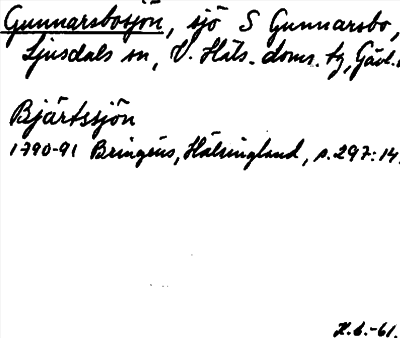 Gunnarsbosjön, sjö S Gunnarsbo,
Ljusdals sn, V. Häls. doms. tg, Gävl.
Bjärtssjön
1790-91 Bringéus, Hälsingland, s. 297:14.
H.C.-61.